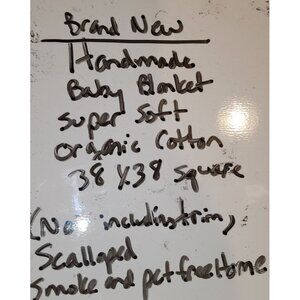 Brand New
Handmade
Baby Blanket
super soft
organic Cotton
38 x 38 square
(Not including trim)
Scalloped
Smoke and pet free Home